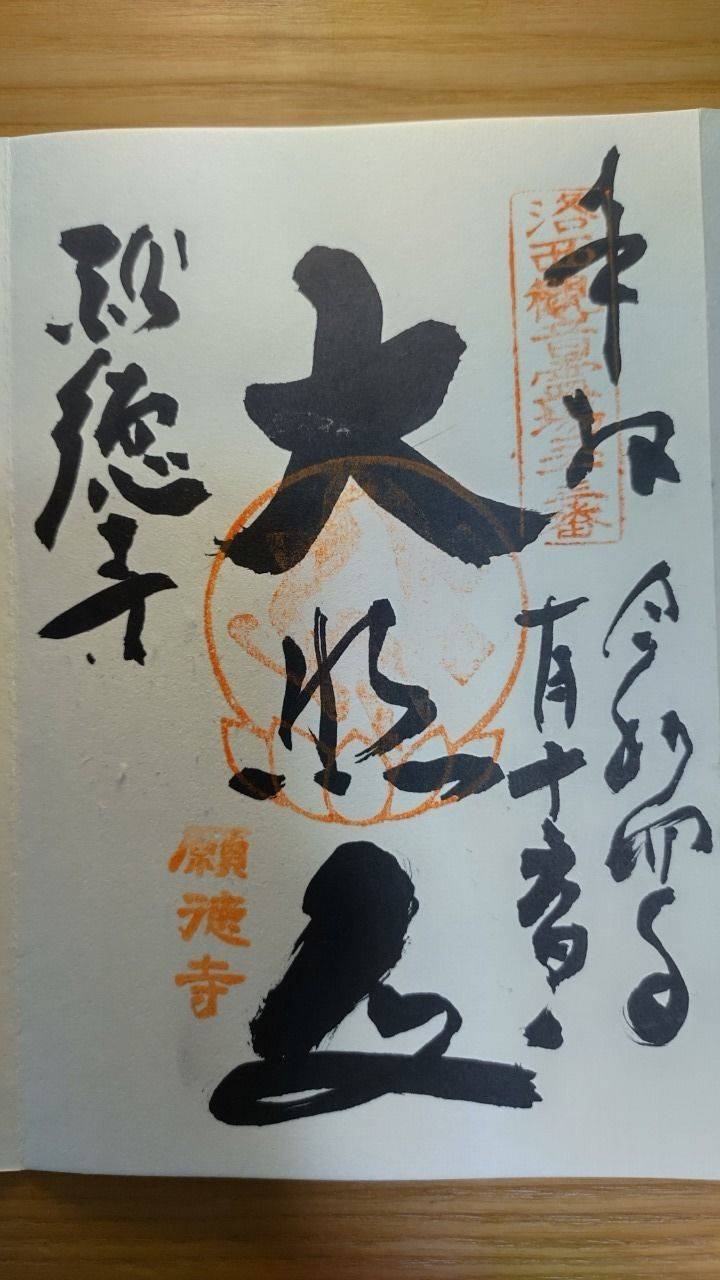 奉拝
洛西観音霊場
番
令和四年
月十
大悲
願徳寺
願徳寺